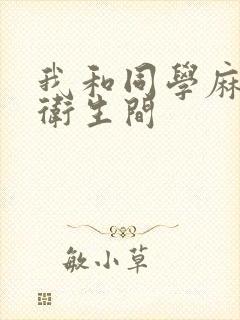 我和同學麻
衛生間
敏小草